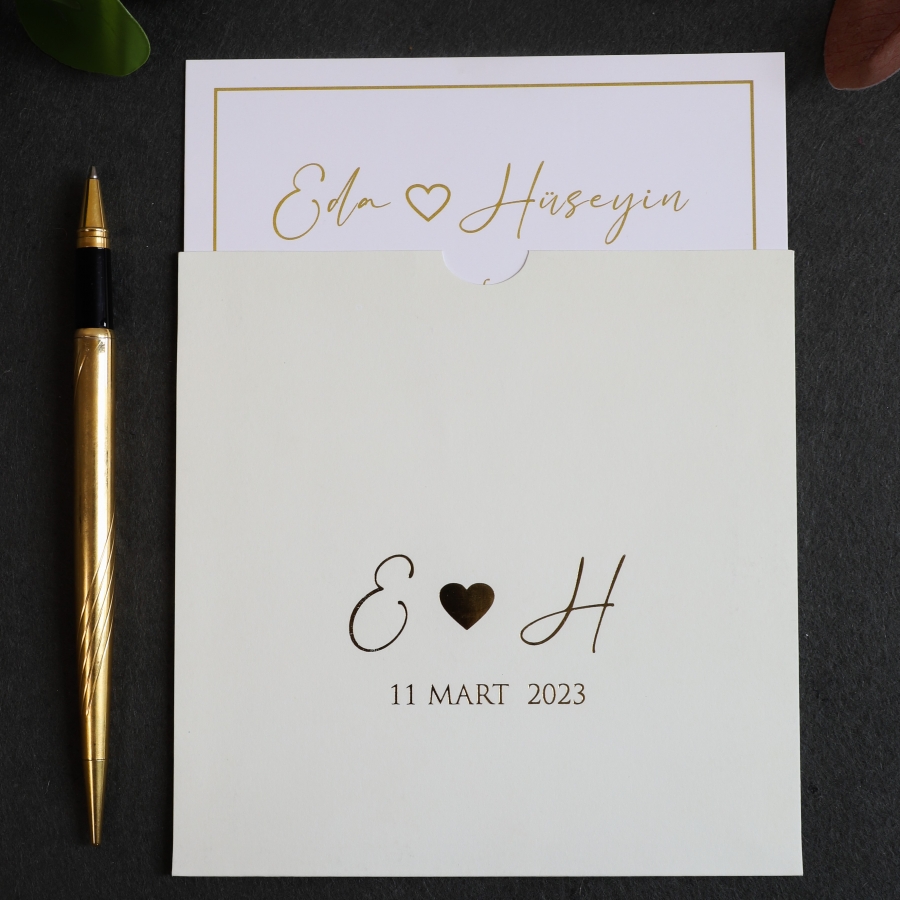 Eda ♡ Hüseyin
E ♥ H
11 MART 2023